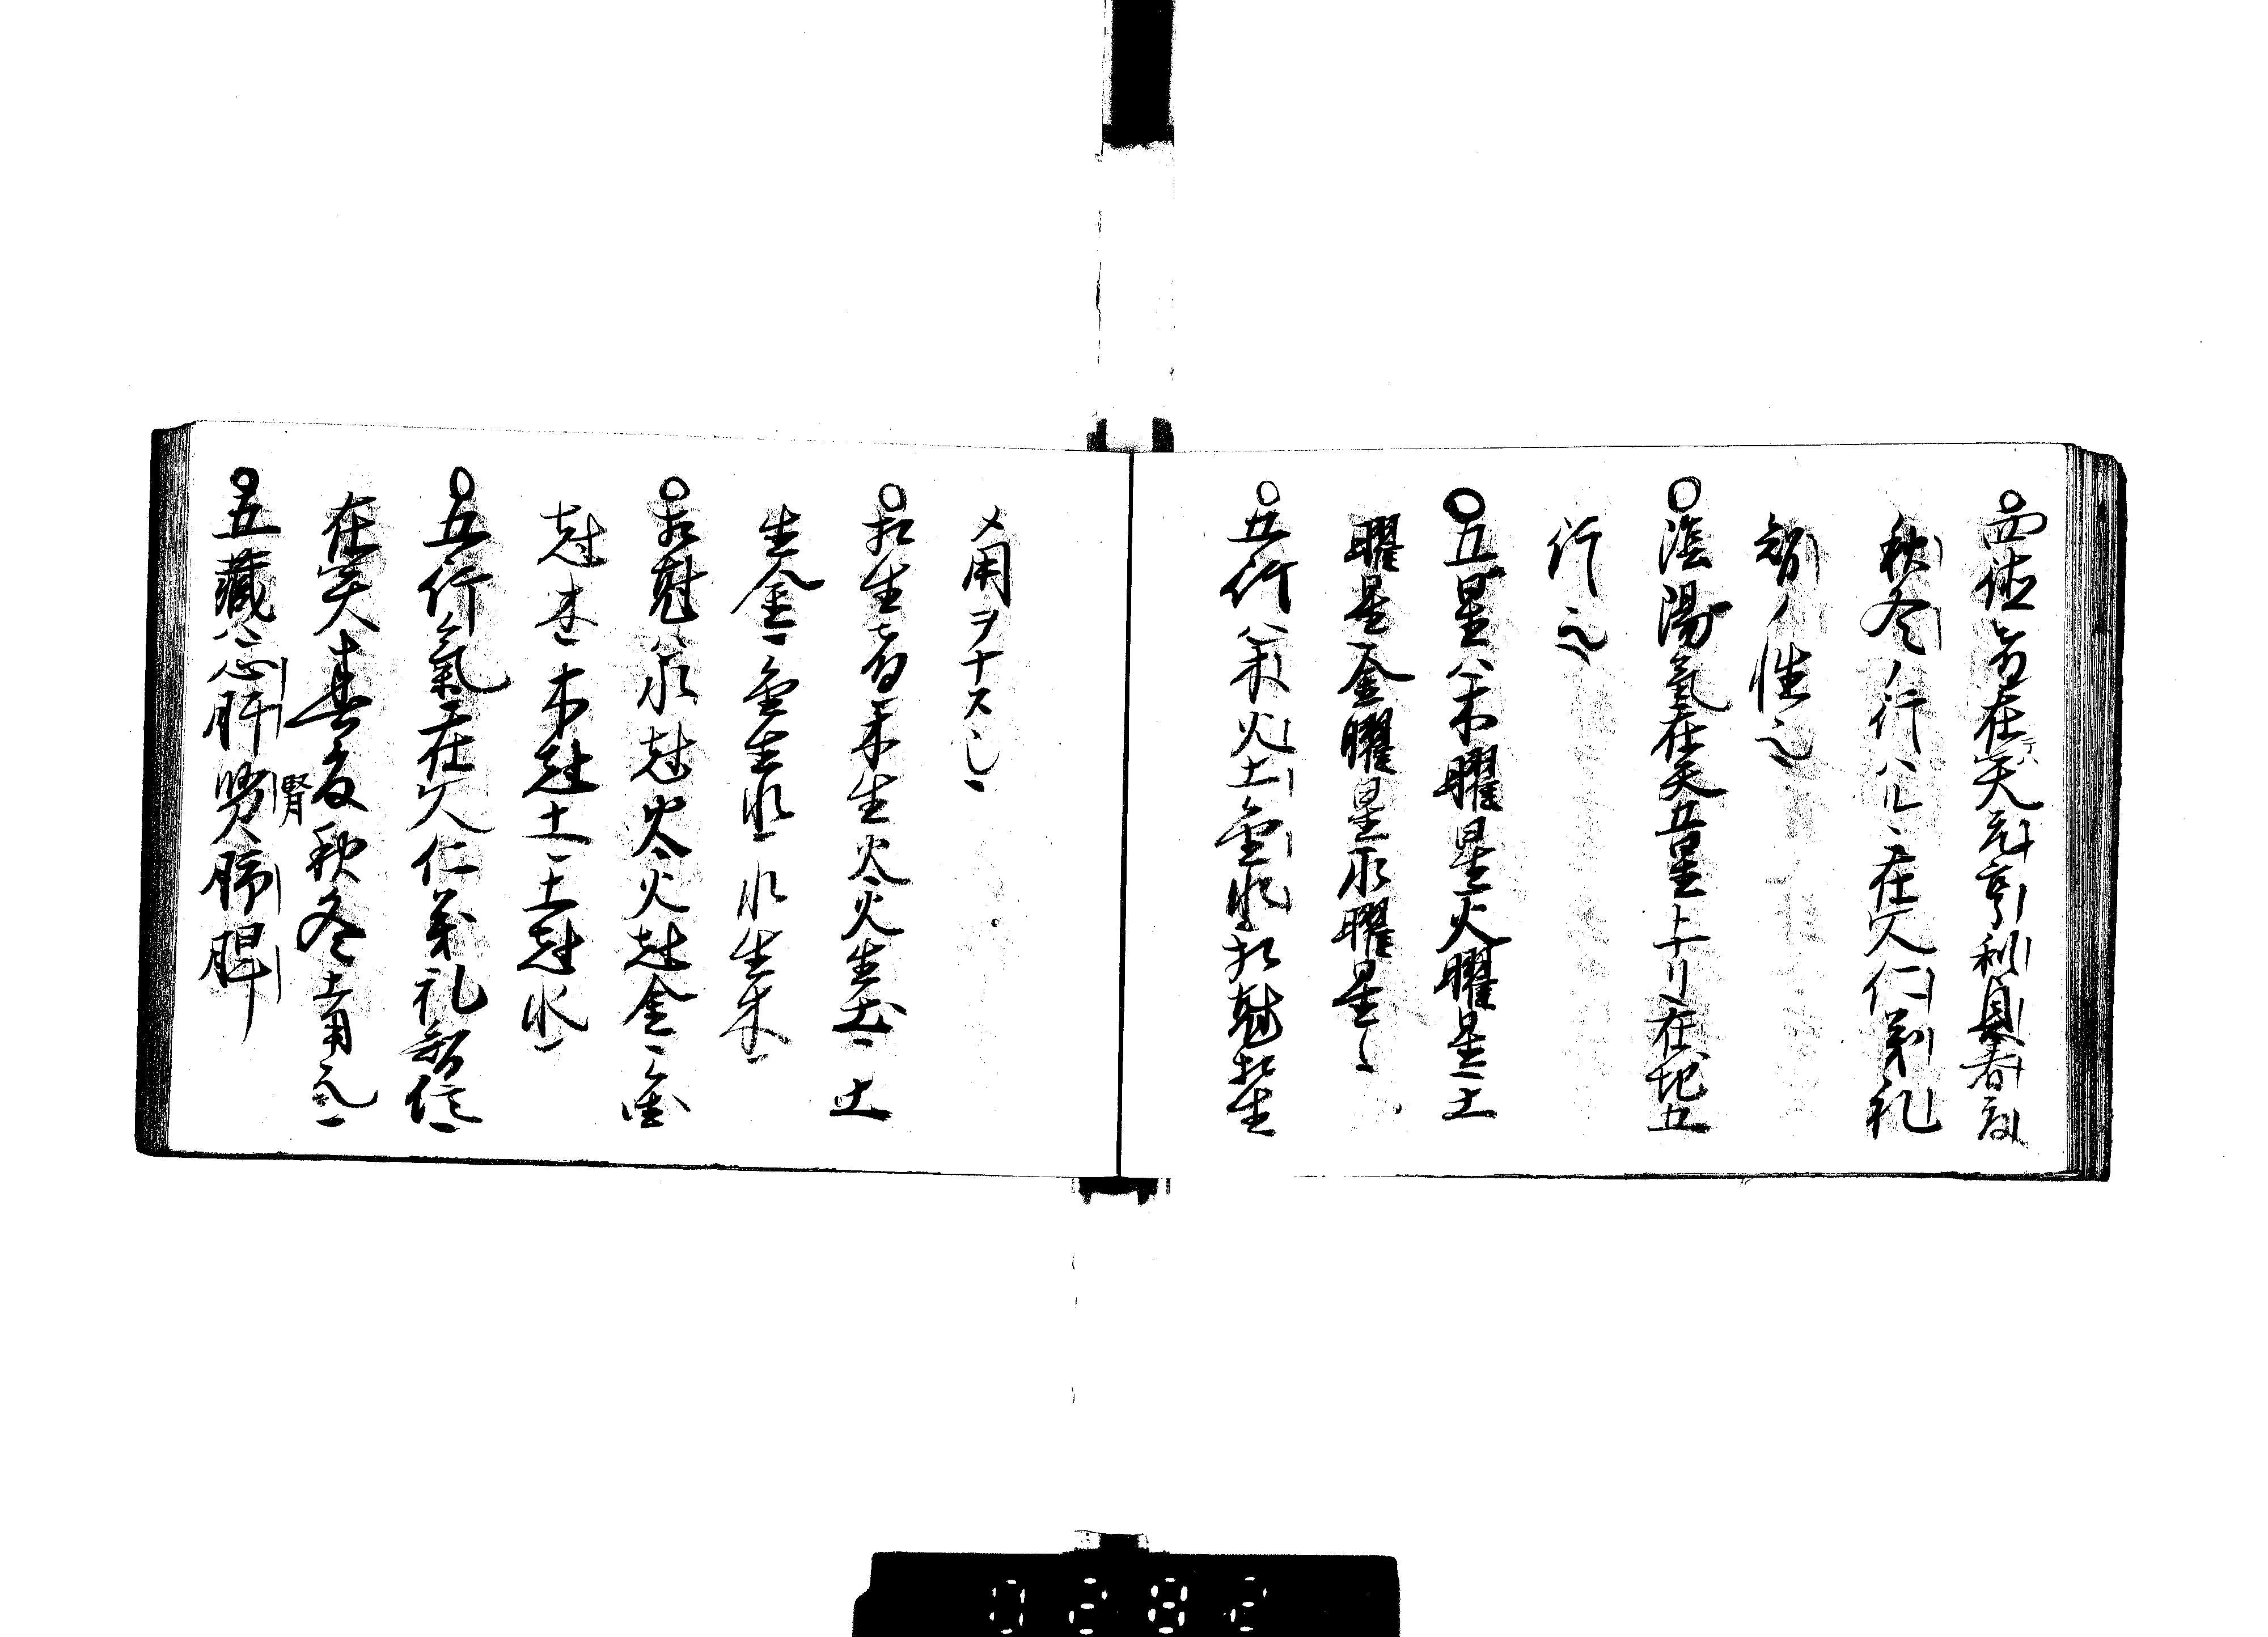 ○四徳者在天ハ元亨利貞春夏
秋冬ノ行ハル在人仁義礼
智ノ性也
○陰陽氣在天五星ト十リ在地五
行也
○五星ハ木曜星火曜星土
曜星金曜星水曜星
○五行ハ木火土金水相尅相生
〆用ヲナス也
○相生者木生火火生土土
生金金生水水生木
○相尅ハ水尅火火尅金金
尅木木尅土土尅水
○五行氣在人仁義礼智信
在天春夏秋冬土用也
○五藏ハ心肝腎肺脾
腎
0282